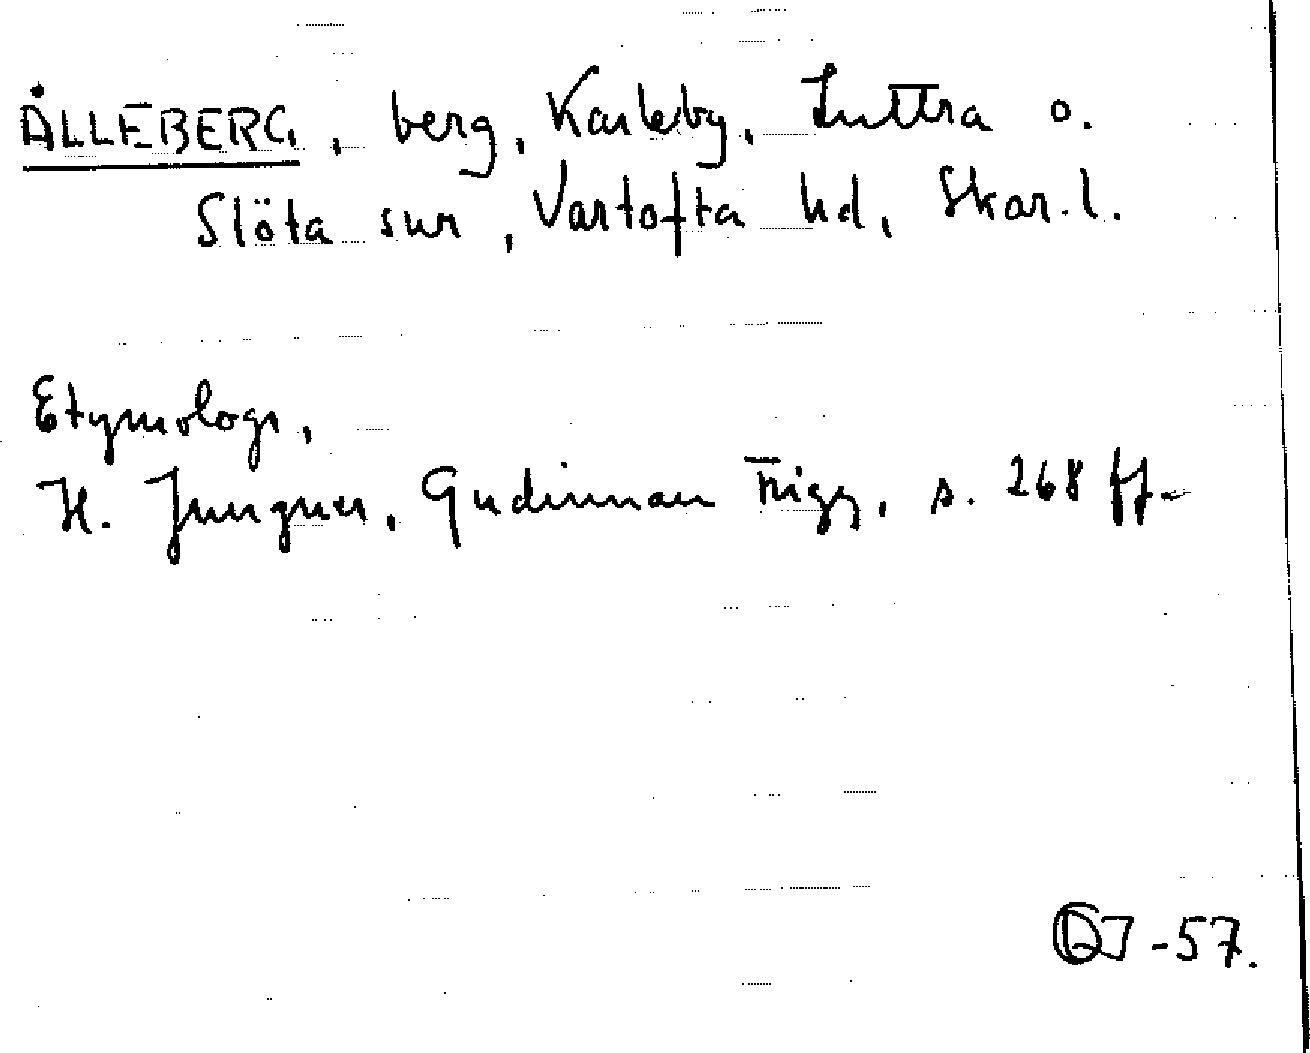 ÅLLEBERG, berg, Karleby, Luttra o.
Slöta snr, Vartofta hd, Skar.l.
Etymologi,
H. Jungner, Gudinnan Frigg, s. 268 ff.
-57.